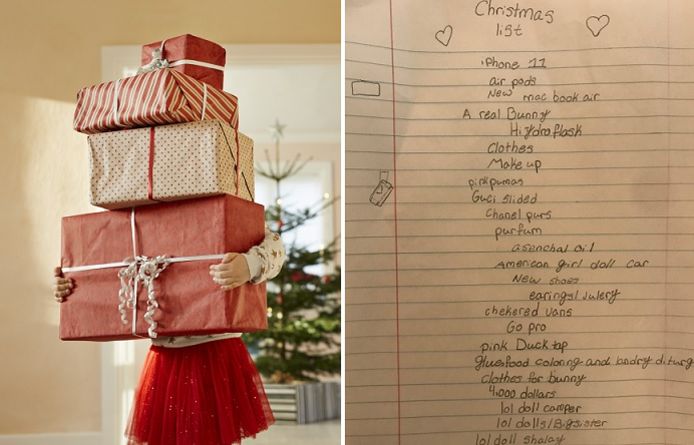 Christmas
list
iPhone 11
air pods
New mac book air
A real Bunny
Hydroflask
Clothes
Make up
pink pumas
Guci slided
Chanel purs
purfum
asenchal oil
American girl doll car
New shoes
earings/julery
chekered vans
Go pro
pink Duck tap
glue food coloring and londry diturg
clothes for bunny
4,000 dollars
lol doll camper
lol dolls/Bigsister
lol doll shalay